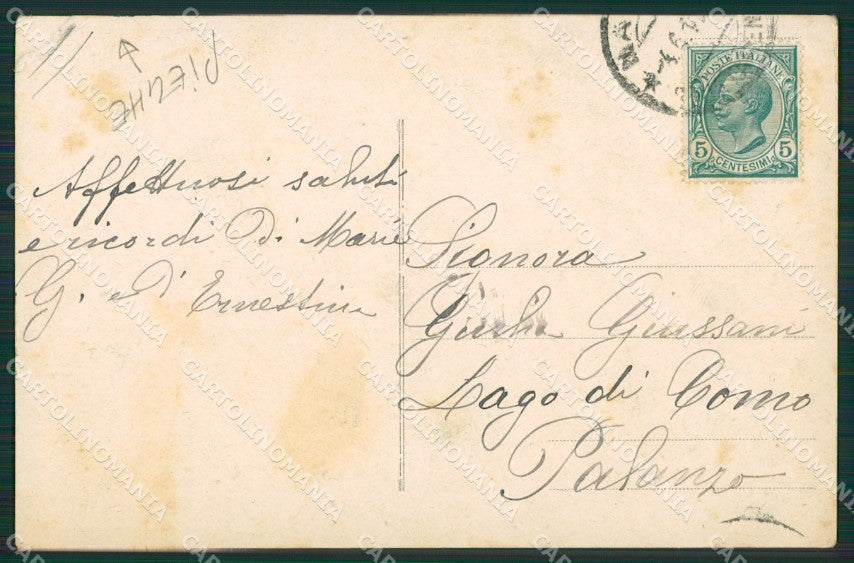 Affettuosi saluti
e ricordi di Marie
G. e d' Ernestina
Signora
Giulia Giussani
Lago di Como
Palanzo
POSTE ITALIANE
5 CENTESIMI 5
CARTOLINOMANIA